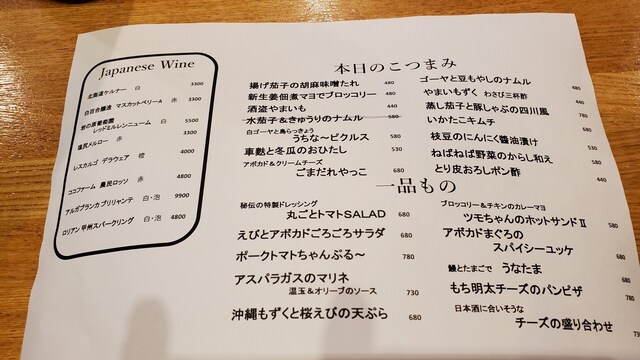 Japanese Wine
北海道ケルナー 白 3300
白百合醸造 マスカットベリーA 赤 3300
岩の原葡萄園
レッドミルレンニューム 白 5500
塩尻メルロー 赤 3300
レスカルゴ デラウェア 橙 4000
ココファーム 農民ロッソ 赤 4800
アルガブランカ ブリリャンテ 白・泡 9900
ロリアン 甲州スパークリング 白・泡 4800
本日のこつまみ
揚げ茄子の胡麻味噌たれ 480
新生姜佃煮マヨでブロッコリー 480
酒盗やまいも 440
水茄子&きゅうりのナムル 580
白ゴーヤと島らっきょう
うちな~ピクルス 580
車麩と冬瓜のおひたし 530
アボカド&クリームチーズ
ごまだれやっこ 680
ゴーヤと豆もやしのナムル 480
やまいもずく わさび三杯酢 480
蒸し茄子と豚しゃぶの四川風 580
いかたこキムチ 440
枝豆のにんにく醬油漬け 530
ねばねば野菜のからし和え 580
とり皮おろしポン酢 440
一品もの
秘伝の特製ドレッシング
丸ごとトマトSALAD 680
えびとアボカドごろごろサラダ 680
ポークトマトちゃんぷる~ 780
アスパラガスのマリネ
温玉&オリーブのソース 730
沖縄もずくと桜えびの天ぷら 680
ブロッコリー&チキンのカレーマヨ
ツモちゃんのホットサンドⅡ 580
アボカドまぐろの
スパイシーユッケ 680
鰻とたまごで うなたま
もち明太チーズのパンピザ 780
日本酒に合いそうな
チーズの盛り合わせ